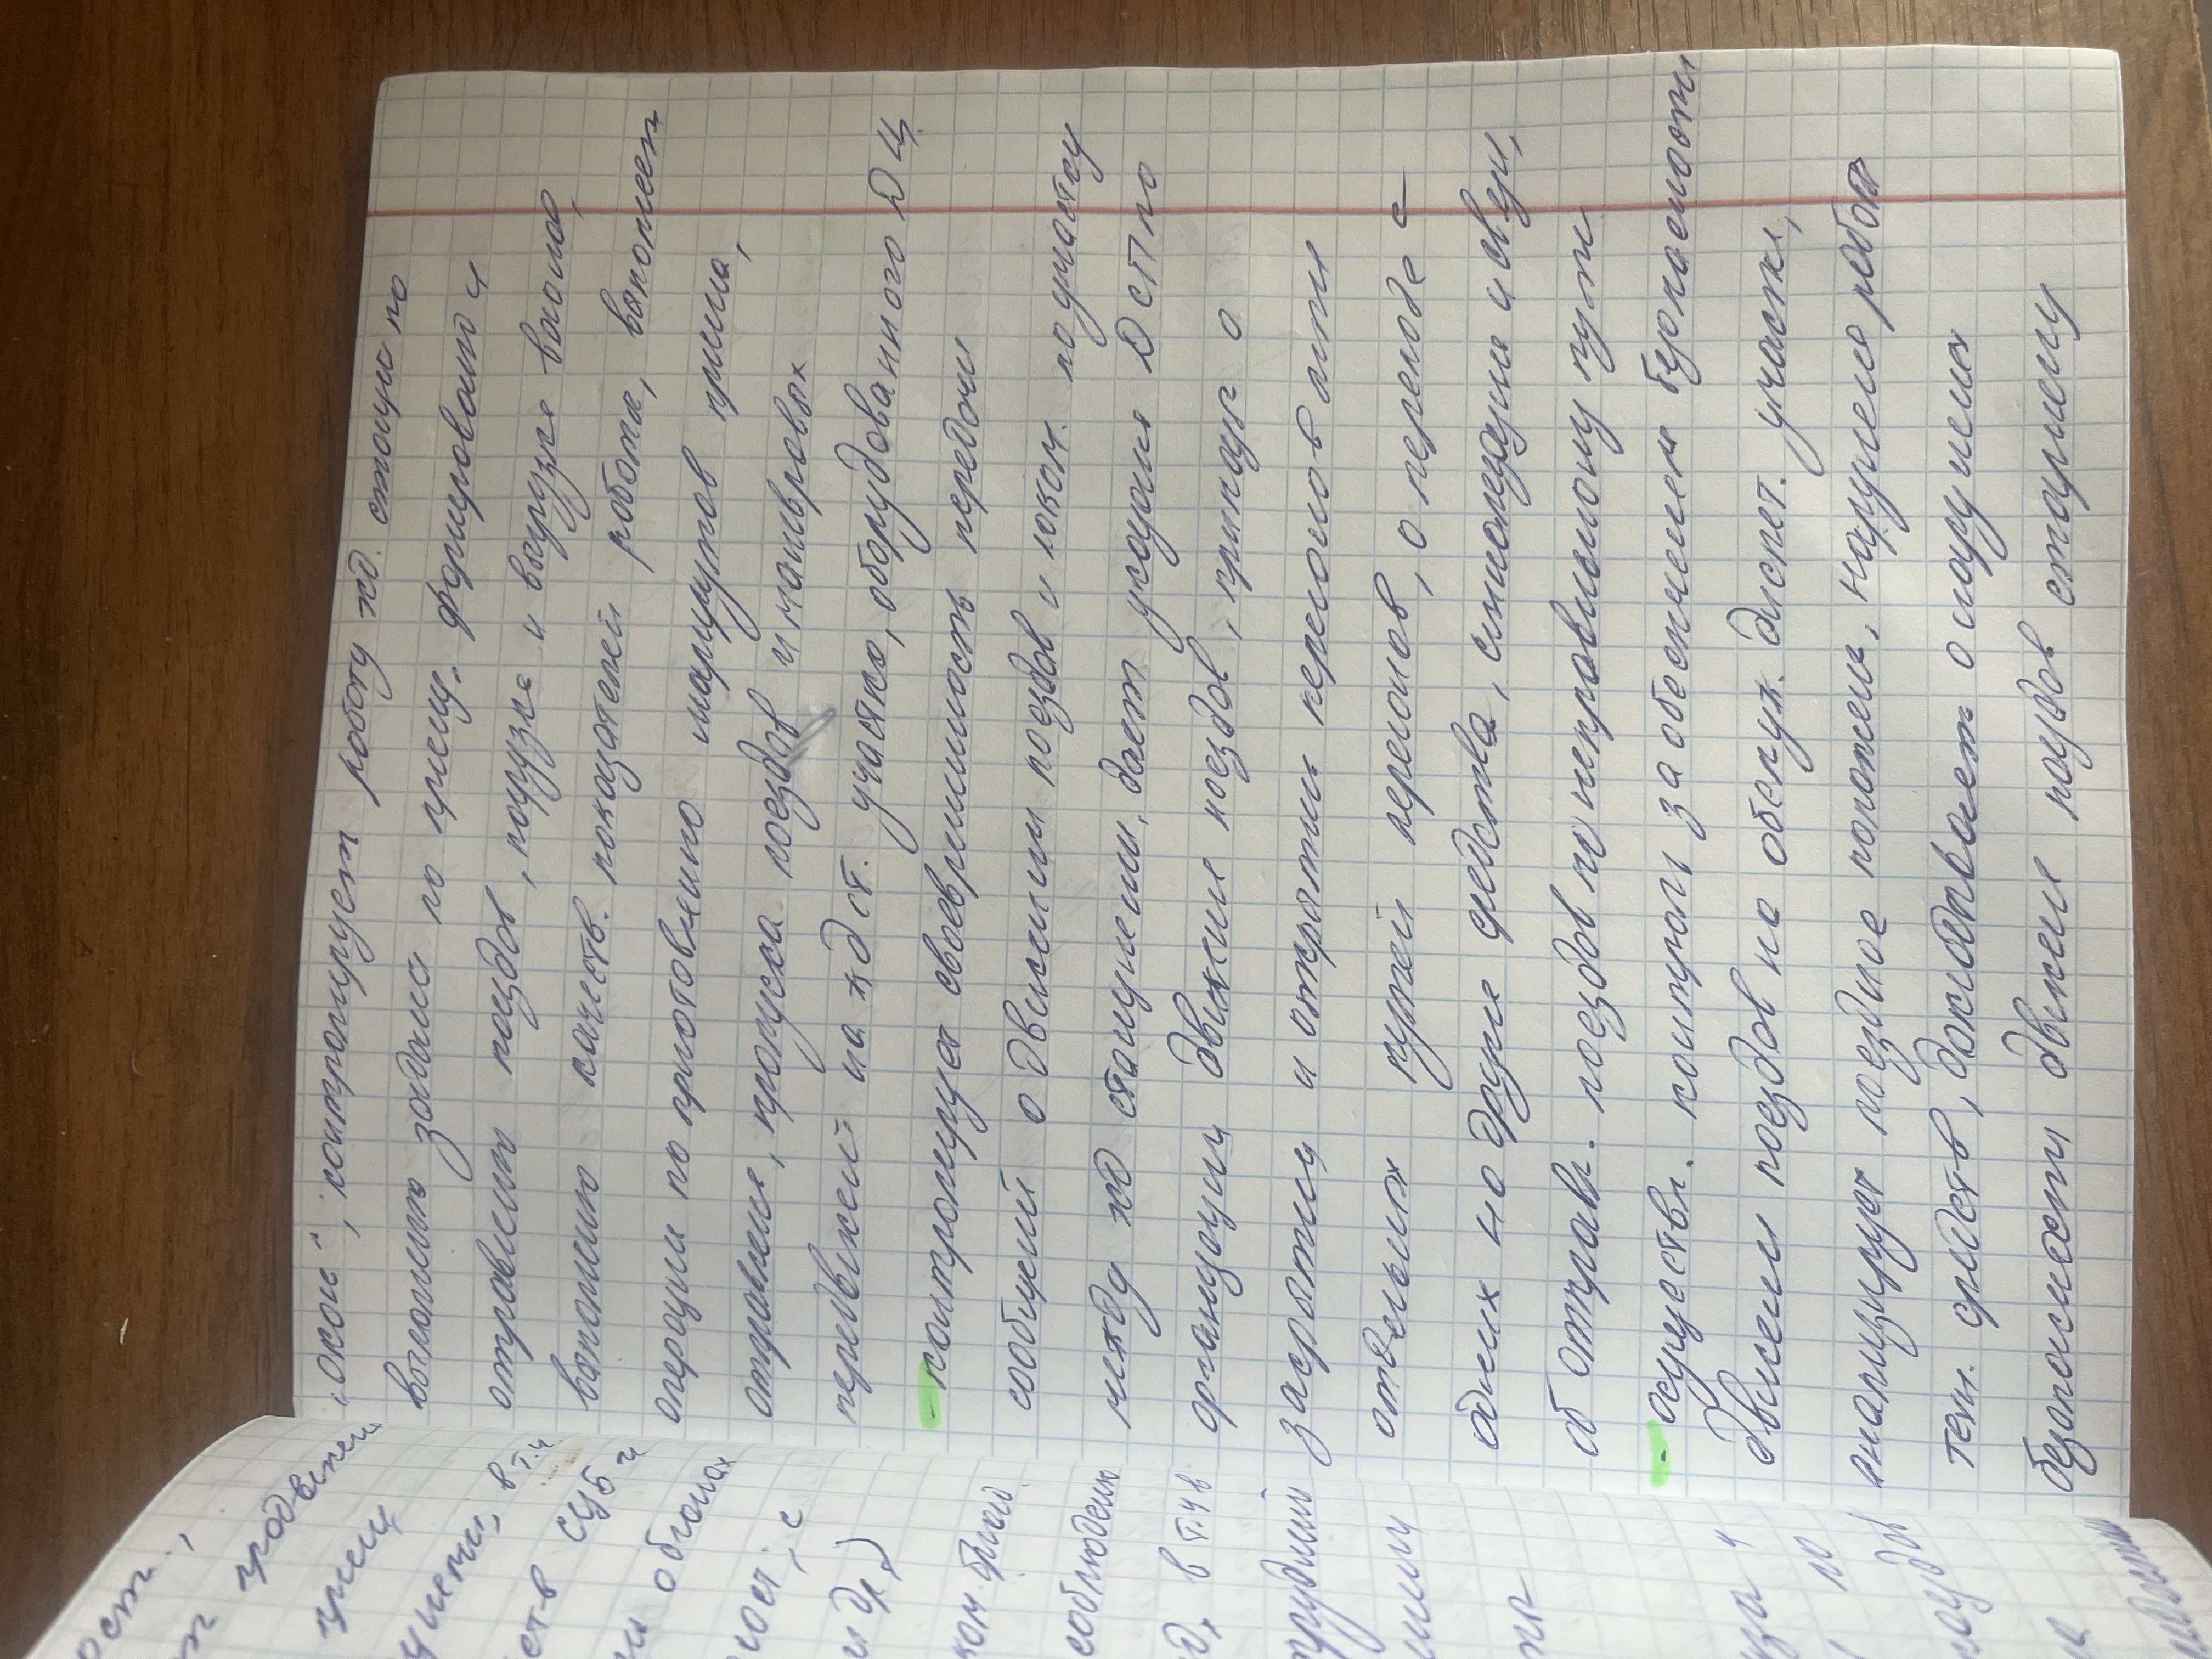 "окон", контролирует работу жд. станции по
выполнению задания по приему. формированию и
отправлению поездов, погрузке и выгрузке вагонов,
выполнению качеств. показателей работы, выполняет
операции по приготовлению маршрутов приема,
отправление, пропуска поездов и маневровых
передвижений на жд ст. участка, оборудованного ДЦ.
- контролирует своевременность передачи
сообщений о движении поездов и локом. по участку
между жд станциями, дает указания ДСП по
организации движения поездов, приказы о
закрытии и открытии перегонов или
отдельных путей перегонов, о переходе с
одних на другие средства, сигнализации и связи,
об отправл. поездов по неправильному пути
- осуществл. контроль за обеспечением безопасности
движения поездов на обслуж. диспет. участке,
анализирует поездное положение, нарушения работы
техн. средств, докладывает о нарушениях
безопасности движения поездов старшему
ост.,
продвижен
в т.ч
ств СЦБ и
облонах
ност.; с
и др.)
соблюдению
в т.ч в